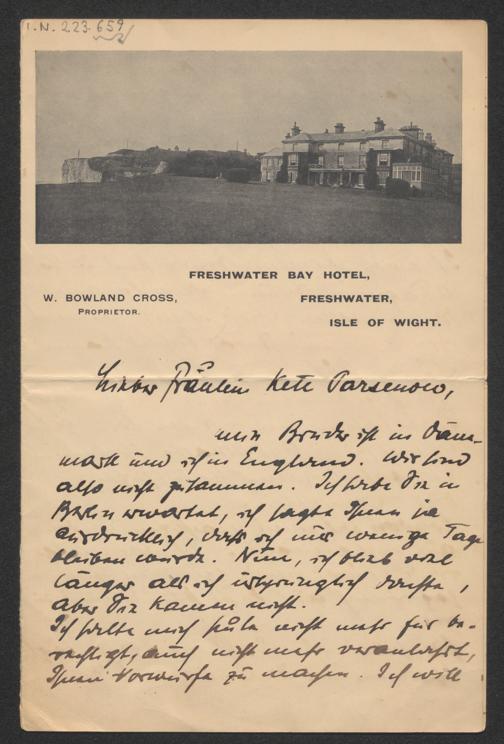 I.N. 223.659
FRESHWATER BAY HOTEL,
W. BOWLAND CROSS,
FRESHWATER,
PROPRIETOR.
ISLE OF WIGHT.
Liebes Fräulein Kete Parsenow,
mein Bruder ist in Däne-
mark und ich in England. Wir sind
also nicht zusammen. Ich habe Sie in
Berlin erwartet, ich sagte Ihnen ja
ausdrücklich, dass ich nur wenige Tage
bleiben würde. Nun, ich blieb viel
länger als ich ursprünglich dachte,
aber Sie kamen nicht.
Ich halte mich heute nicht mehr für be-
rechtigt, auch nicht mehr veranlasst,
Ihnen Vorwürfe zu machen. Ich will